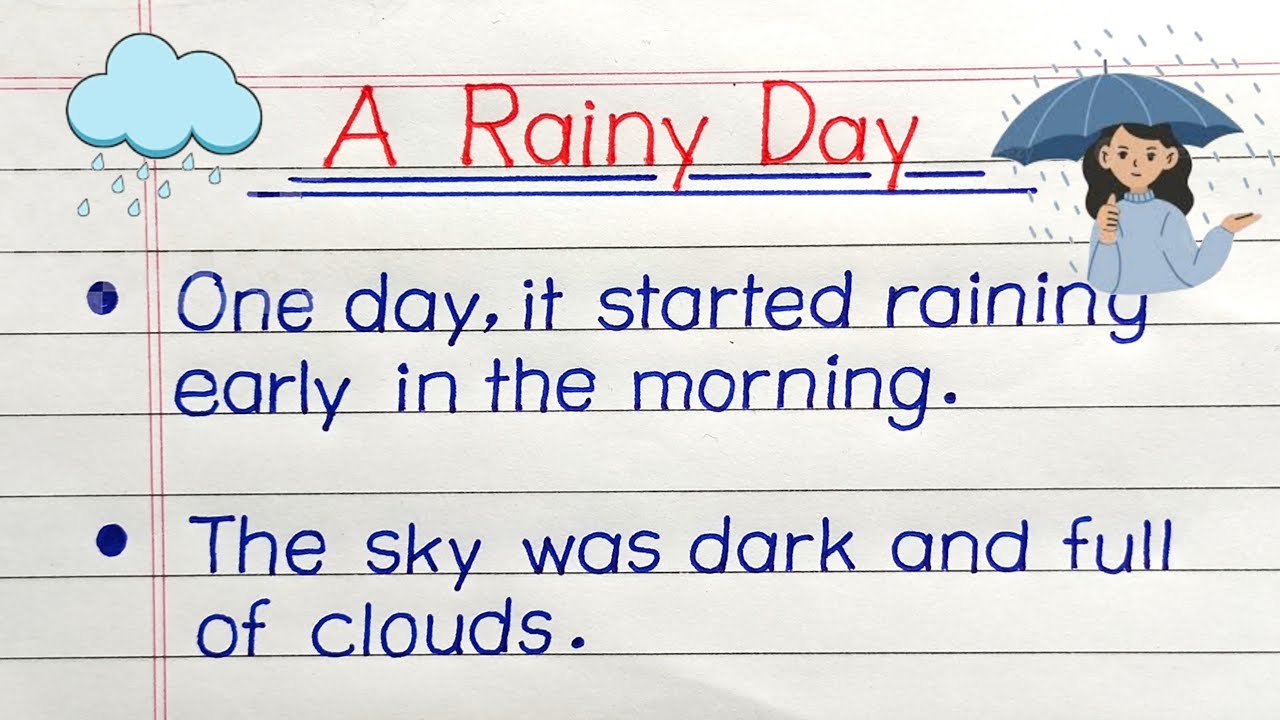 A Rainy Day
• One day, it started raining
early in the morning.
• The sky was dark and full
of clouds.